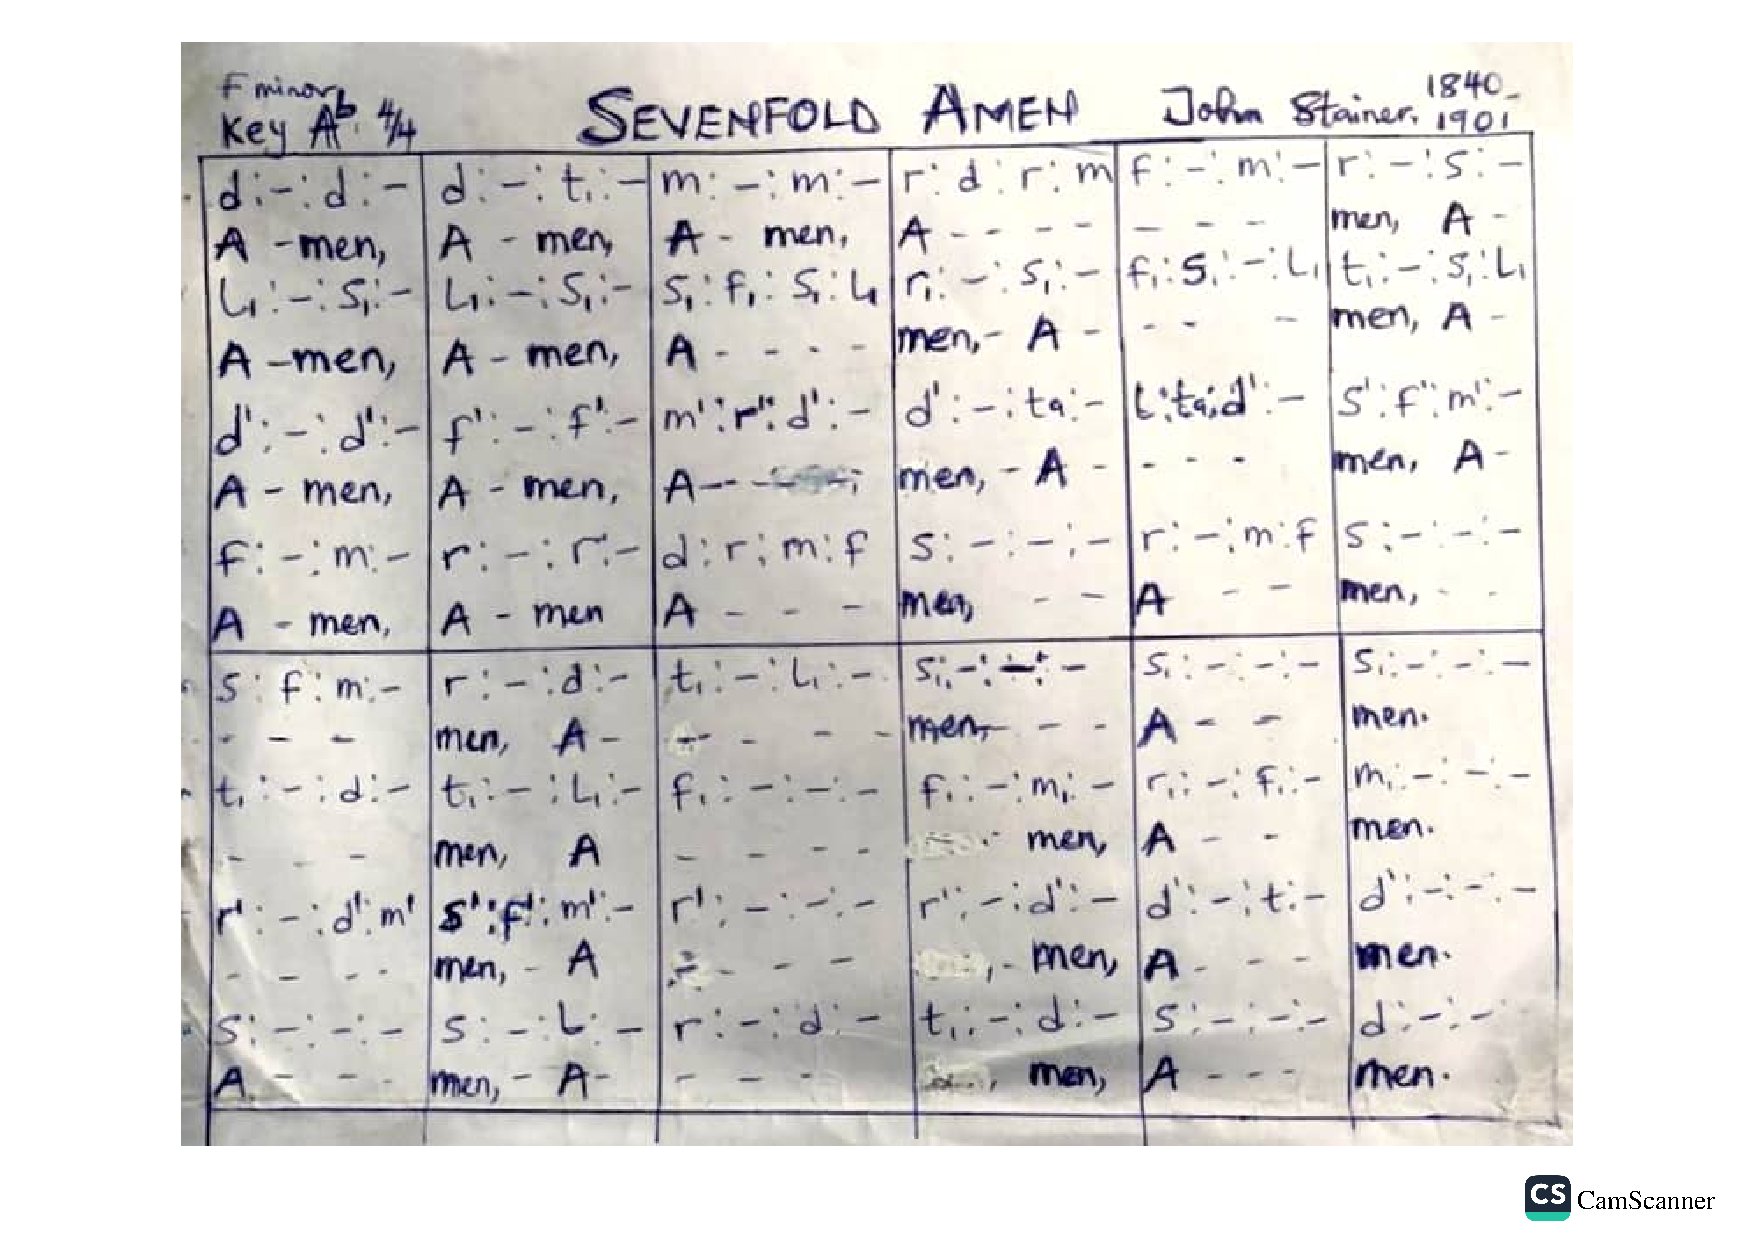 F minor
Key Ab 4/4 SEVENFOLD AMEN John Stainer. 1840-1901
d:-:d:- d:-:t₁:- m:-:m:- r:d:r:m f:-:m:- r:-:s:-
A -men, A - men, A - men, A - - - - - - - - men, A -
L₁:-:S₁:- L₁:-:S₁:- S₁:f₁:S₁:L₁ r₁:-:S₁:- f₁:S₁:-:L₁ t₁:-:S₁:L₁
A -men, A - men, A - - - - men,- A - - - - men, A -
d':-:d':- f':-:f':- m':r':d':- d':-:ta:- L:ta:d':- s':f':m':-
A - men, A - men, A-- - men, - A - - - - men, A -
f:-:m:- r:-:r:- d:r:m:f s:-:-:- r:-:m:f s:-:-:-
A - men, A - men A - - - men, - - A - - men, - -
s:f:m:- r:-:d:- t₁:-:L₁:- S₁:-:-:- S₁:-:-:- S₁:-:-:-
- - - men, A - - - - - men, - - - A - - men.
t₁:-:d:- t₁:-:L₁:- f₁:-:-:- f₁:-:m₁:- r₁:-:f₁:- m₁:-:-:-
- - - men, A - - - - men, A - - men.
r':-:d':m' s':f':m':- r':-:-:- r':-:d':- d':-:t:- d':-:-:-
- - - - men, - A - - - men, A - - - men.
s:-:-:- s:-:L:- r:-:d:- t₁:-:d:- s:-:-:- d:-:-:-
A - - - men, - A - - - - men, A - - - men.
CS CamScanner